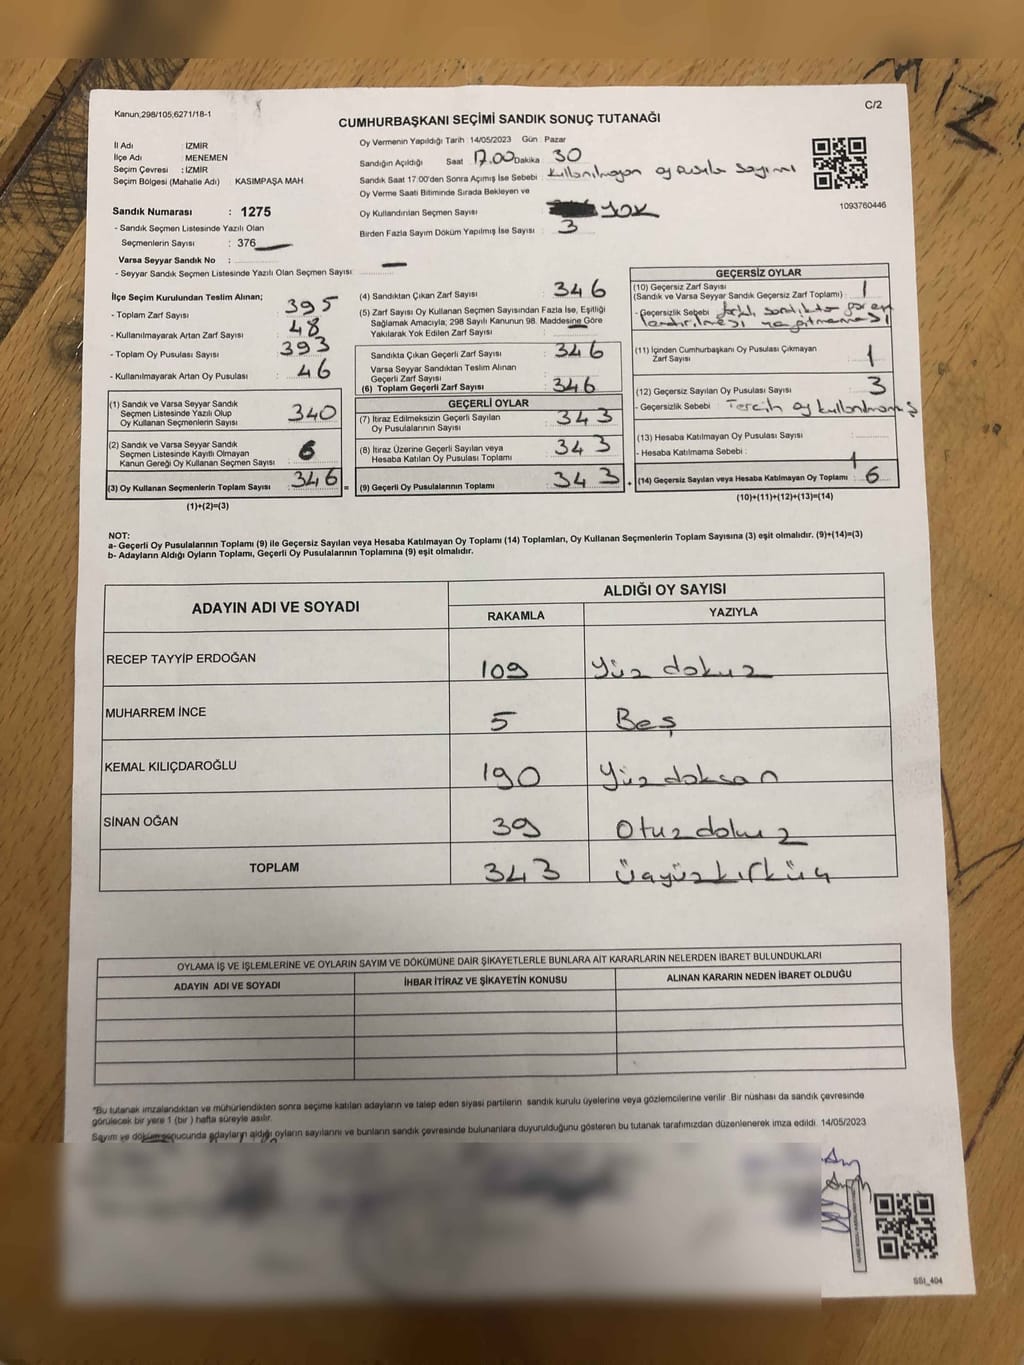 Kanun;298/105,6271/18-1
C/2
CUMHURBAŞKANI SEÇİMİ SANDIK SONUÇ TUTANAĞI
İl Adı : İZMİR
İlçe Adı : MENEMEN
Seçim Çevresi : İZMİR
Seçim Bölgesi (Mahalle Adı) : KASIMPAŞA MAH
Oy Vermenin Yapıldığı Tarih 14/05/2023 Gün : Pazar
Sandığın Açıldığı Saat 17.00 Dakika 30
Sandık Saat 17:00'den Sonra Açılmış İse Sebebi : kullanılmayan oy pusula sayımı
Oy Verme Saati Bitiminde Sırada Bekleyen ve
Oy Kullandırılan Seçmen Sayısı : YOK
Birden Fazla Sayım Döküm Yapılmış İse Sayısı : 3
1093760446
Sandık Numarası : 1275
- Sandık Seçmen Listesinde Yazılı Olan
Seçmenlerin Sayısı : 376
Varsa Seyyar Sandık No :
- Seyyar Sandık Seçmen Listesinde Yazılı Olan Seçmen Sayısı :
İlçe Seçim Kurulundan Teslim Alınan;
- Toplam Zarf Sayısı : 395
- Kullanılmayarak Artan Zarf Sayısı : 48
- Toplam Oy Pusulası Sayısı : 393
- Kullanılmayarak Artan Oy Pusulası : 46
(1) Sandık ve Varsa Seyyar Sandık
Seçmen Listesinde Yazılı Olup
Oy Kullanan Seçmenlerin Sayısı : 340
(2) Sandık ve Varsa Seyyar Sandık
Seçmen Listesinde Kayıtlı Olmayan
Kanun Gereği Oy Kullanan Seçmen Sayısı : 6
(3) Oy Kullanan Seçmenlerin Toplam Sayısı : 346
(1)+(2)=(3)
(4) Sandıktan Çıkan Zarf Sayısı : 346
(5) Zarf Sayısı Oy Kullanan Seçmen Sayısından Fazla İse, Eşitliği
Sağlamak Amacıyla, 298 Sayılı Kanunun 98. Maddesine Göre
Yakılarak Yok Edilen Zarf Sayısı :
Sandıkta Çıkan Geçerli Zarf Sayısı : 346
Varsa Seyyar Sandıktan Teslim Alınan
Geçerli Zarf Sayısı :
(6) Toplam Geçerli Zarf Sayısı : 346
GEÇERLİ OYLAR
(7) İtiraz Edilmeksizin Geçerli Sayılan
Oy Pusulalarının Sayısı : 343
(8) İtiraz Üzerine Geçerli Sayılan veya
Hesaba Katılan Oy Pusulası Toplamı : 343
= (9) Geçerli Oy Pusulalarının Toplamı : 343
GEÇERSİZ OYLAR
(10) Geçersiz Zarf Sayısı
(Sandık ve Varsa Seyyar Sandık Geçersiz Zarf Toplamı) : 1
- Geçersizlik Sebebi : farklı sandıkta
(11) İçinden Cumhurbaşkanı Oy Pusulası Çıkmayan
Zarf Sayısı : 1
(12) Geçersiz Sayılan Oy Pusulası Sayısı : 3
- Geçersizlik Sebebi : Tercih oy kullanılmamış
(13) Hesaba Katılmayan Oy Pusulası Sayısı :
- Hesaba Katılmama Sebebi : 1
(14) Geçersiz Sayılan veya Hesaba Katılmayan Oy Toplamı : 6
(10)+(11)+(12)+(13)=(14)
NOT:
a- Geçerli Oy Pusulalarının Toplamı (9) ile Geçersiz Sayılan veya Hesaba Katılmayan Oy Toplamı (14) Toplamları, Oy Kullanan Seçmenlerin Toplam Sayısına (3) eşit olmalıdır. (9)+(14)=(3)
b- Adayların Aldığı Oyların Toplamı, Geçerli Oy Pusulalarının Toplamına (9) eşit olmalıdır.
ADAYIN ADI VE SOYADI
ALDIĞI OY SAYISI
RAKAMLA YAZIYLA
RECEP TAYYİP ERDOĞAN 109 Yüz dokuz
MUHARREM İNCE 5 Beş
KEMAL KILIÇDAROĞLU 190 Yüz doksan
SİNAN OĞAN 39 Otuz dokuz
TOPLAM 343 Üçyüzkırküç
OYLAMA İŞ VE İŞLEMLERİNE VE OYLARIN SAYIM VE DÖKÜMÜNE DAİR ŞİKAYETLERLE BUNLARA AİT KARARLARIN NELERDEN İBARET BULUNDUKLARI
ADAYIN ADI VE SOYADI İHBAR İTİRAZ VE ŞİKAYETİN KONUSU ALINAN KARARIN NEDEN İBARET OLDUĞU
"Bu tutanak imzalandıktan ve mühürlendikten sonra seçime katılan adayların ve talep eden siyasi partilerin sandık kurulu üyelerine veya gözlemcilerine verilir .Bir nüshası da sandık çevresinde
görülecek bir yere 1 (bir ) hafta süreyle asılır.
Sayım ve döküm sonucunda adayların aldığı oyların sayılarını ve bunların sandık çevresinde bulunanlara duyurulduğunu gösteren bu tutanak tarafımızdan düzenlenerek imza edildi. 14/05/2023
SSI_404